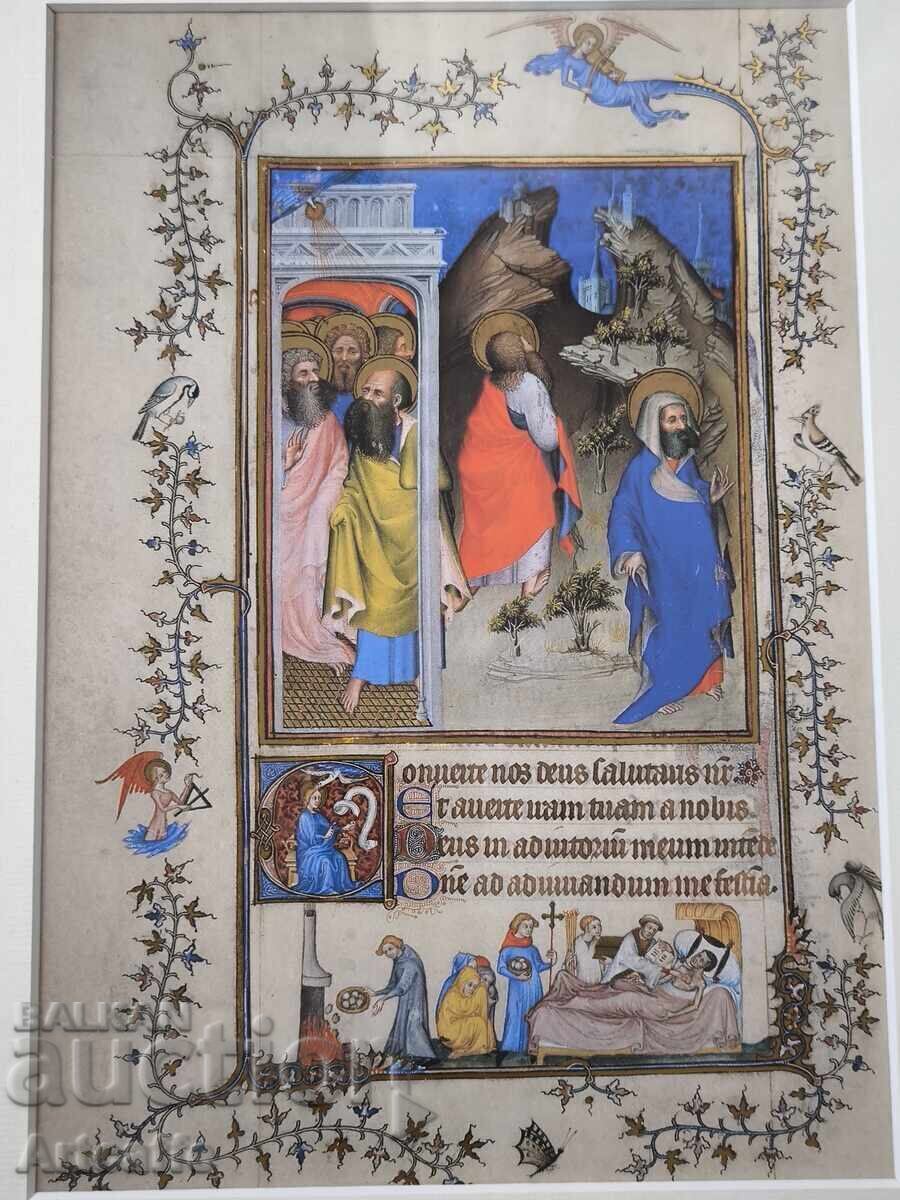 Conuerte nos deus salutaris nr̄
Et auerte iram tuam a nobis
Deus in adiutoriū meum intēde
Dn̄e ad adiuuandum me festīa.
BALKAN
auction
Artcaffe